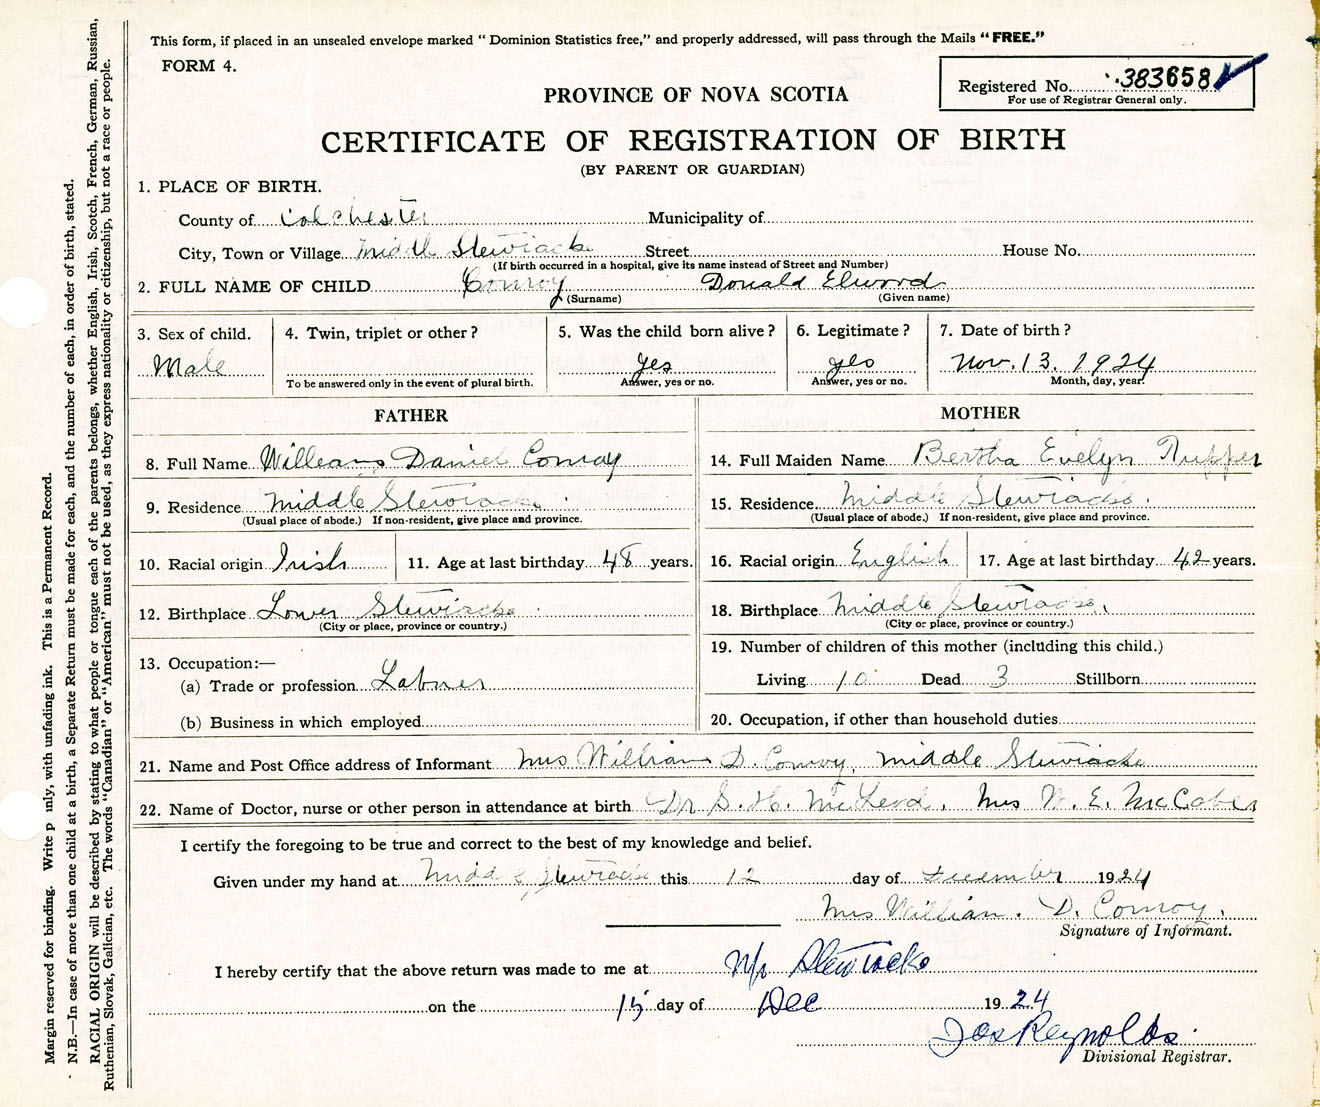 This form, if placed in an unsealed envelope marked "Dominion Statistics free," and properly addressed, will pass through the Mails "FREE."
FORM 4.
Registered No. 383658
For use of Registrar General only.
PROVINCE OF NOVA SCOTIA
CERTIFICATE OF REGISTRATION OF BIRTH
(BY PARENT OR GUARDIAN)
1. PLACE OF BIRTH.
County of Colchester Municipality of
City, Town or Village Middle Stewiacke Street House No.
(If birth occurred in a hospital, give its name instead of Street and Number)
2. FULL NAME OF CHILD Conroy Donald Elwood
(Surname) (Given name)
3. Sex of child. 4. Twin, triplet or other? 5. Was the child born alive? 6. Legitimate? 7. Date of birth?
Male yes yes Nov. 13. 1924
To be answered only in the event of plural birth. Answer, yes or no. Answer, yes or no. Month, day, year.
FATHER MOTHER
8. Full Name William Daniel Conroy 14. Full Maiden Name Bertha Evelyn Tupper
9. Residence Middle Stewiacke 15. Residence Middle Stewiacke.
(Usual place of abode.) If non-resident, give place and province. (Usual place of abode.) If non-resident, give place and province.
10. Racial origin Irish 11. Age at last birthday 48 years. 16. Racial origin English 17. Age at last birthday 42 years.
12. Birthplace Lower Stewiacke 18. Birthplace Middle Stewiacke.
(City or place, province or country.) (City or place, province or country.)
13. Occupation:— 19. Number of children of this mother (including this child.)
(a) Trade or profession Labner Living 10 Dead 3 Stillborn
(b) Business in which employed 20. Occupation, if other than household duties
21. Name and Post Office address of Informant Mrs William D. Conroy, Middle Stewiacke
22. Name of Doctor, nurse or other person in attendance at birth Dr S. H. McLeod. Mrs W. E. McCabe
I certify the foregoing to be true and correct to the best of my knowledge and belief.
Given under my hand at Middle Stewiacke this 12 day of December 1924
Mrs William. D. Conroy.
Signature of Informant.
I hereby certify that the above return was made to me at M/r Stewiacke
on the 15 day of Dec 1924
Jas Reynolds.
Divisional Registrar.
Margin reserved for binding. Write p mly, with unfading ink. This is a Permanent Record.
N.B.—In case of more than one child at a birth, a Separate Return must be made for each, and the number of each, in order of birth, stated.
RACIAL ORIGIN will be described by stating to what people or tongue each of the parents belongs, whether English, Irish, Scotch, French, German, Russian,
Ruthenian, Slovak, Galician, etc. The words "Canadian" or "American" must not be used, as they express nationality or citizenship, but not a race or people.